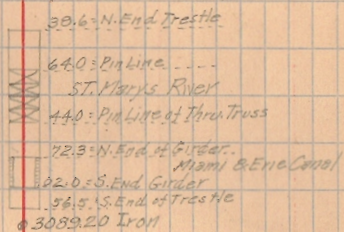 38.6 = N. End Trestle
64.0 = Pin Line
ST. Marys River
44.0 = Pin Line of Thru Truss
72.3 = N. End of Girder
Miami & Erie Canal
02.0 = S. End Girder
56.5 = S. End of Trestle
3089.20 Iron